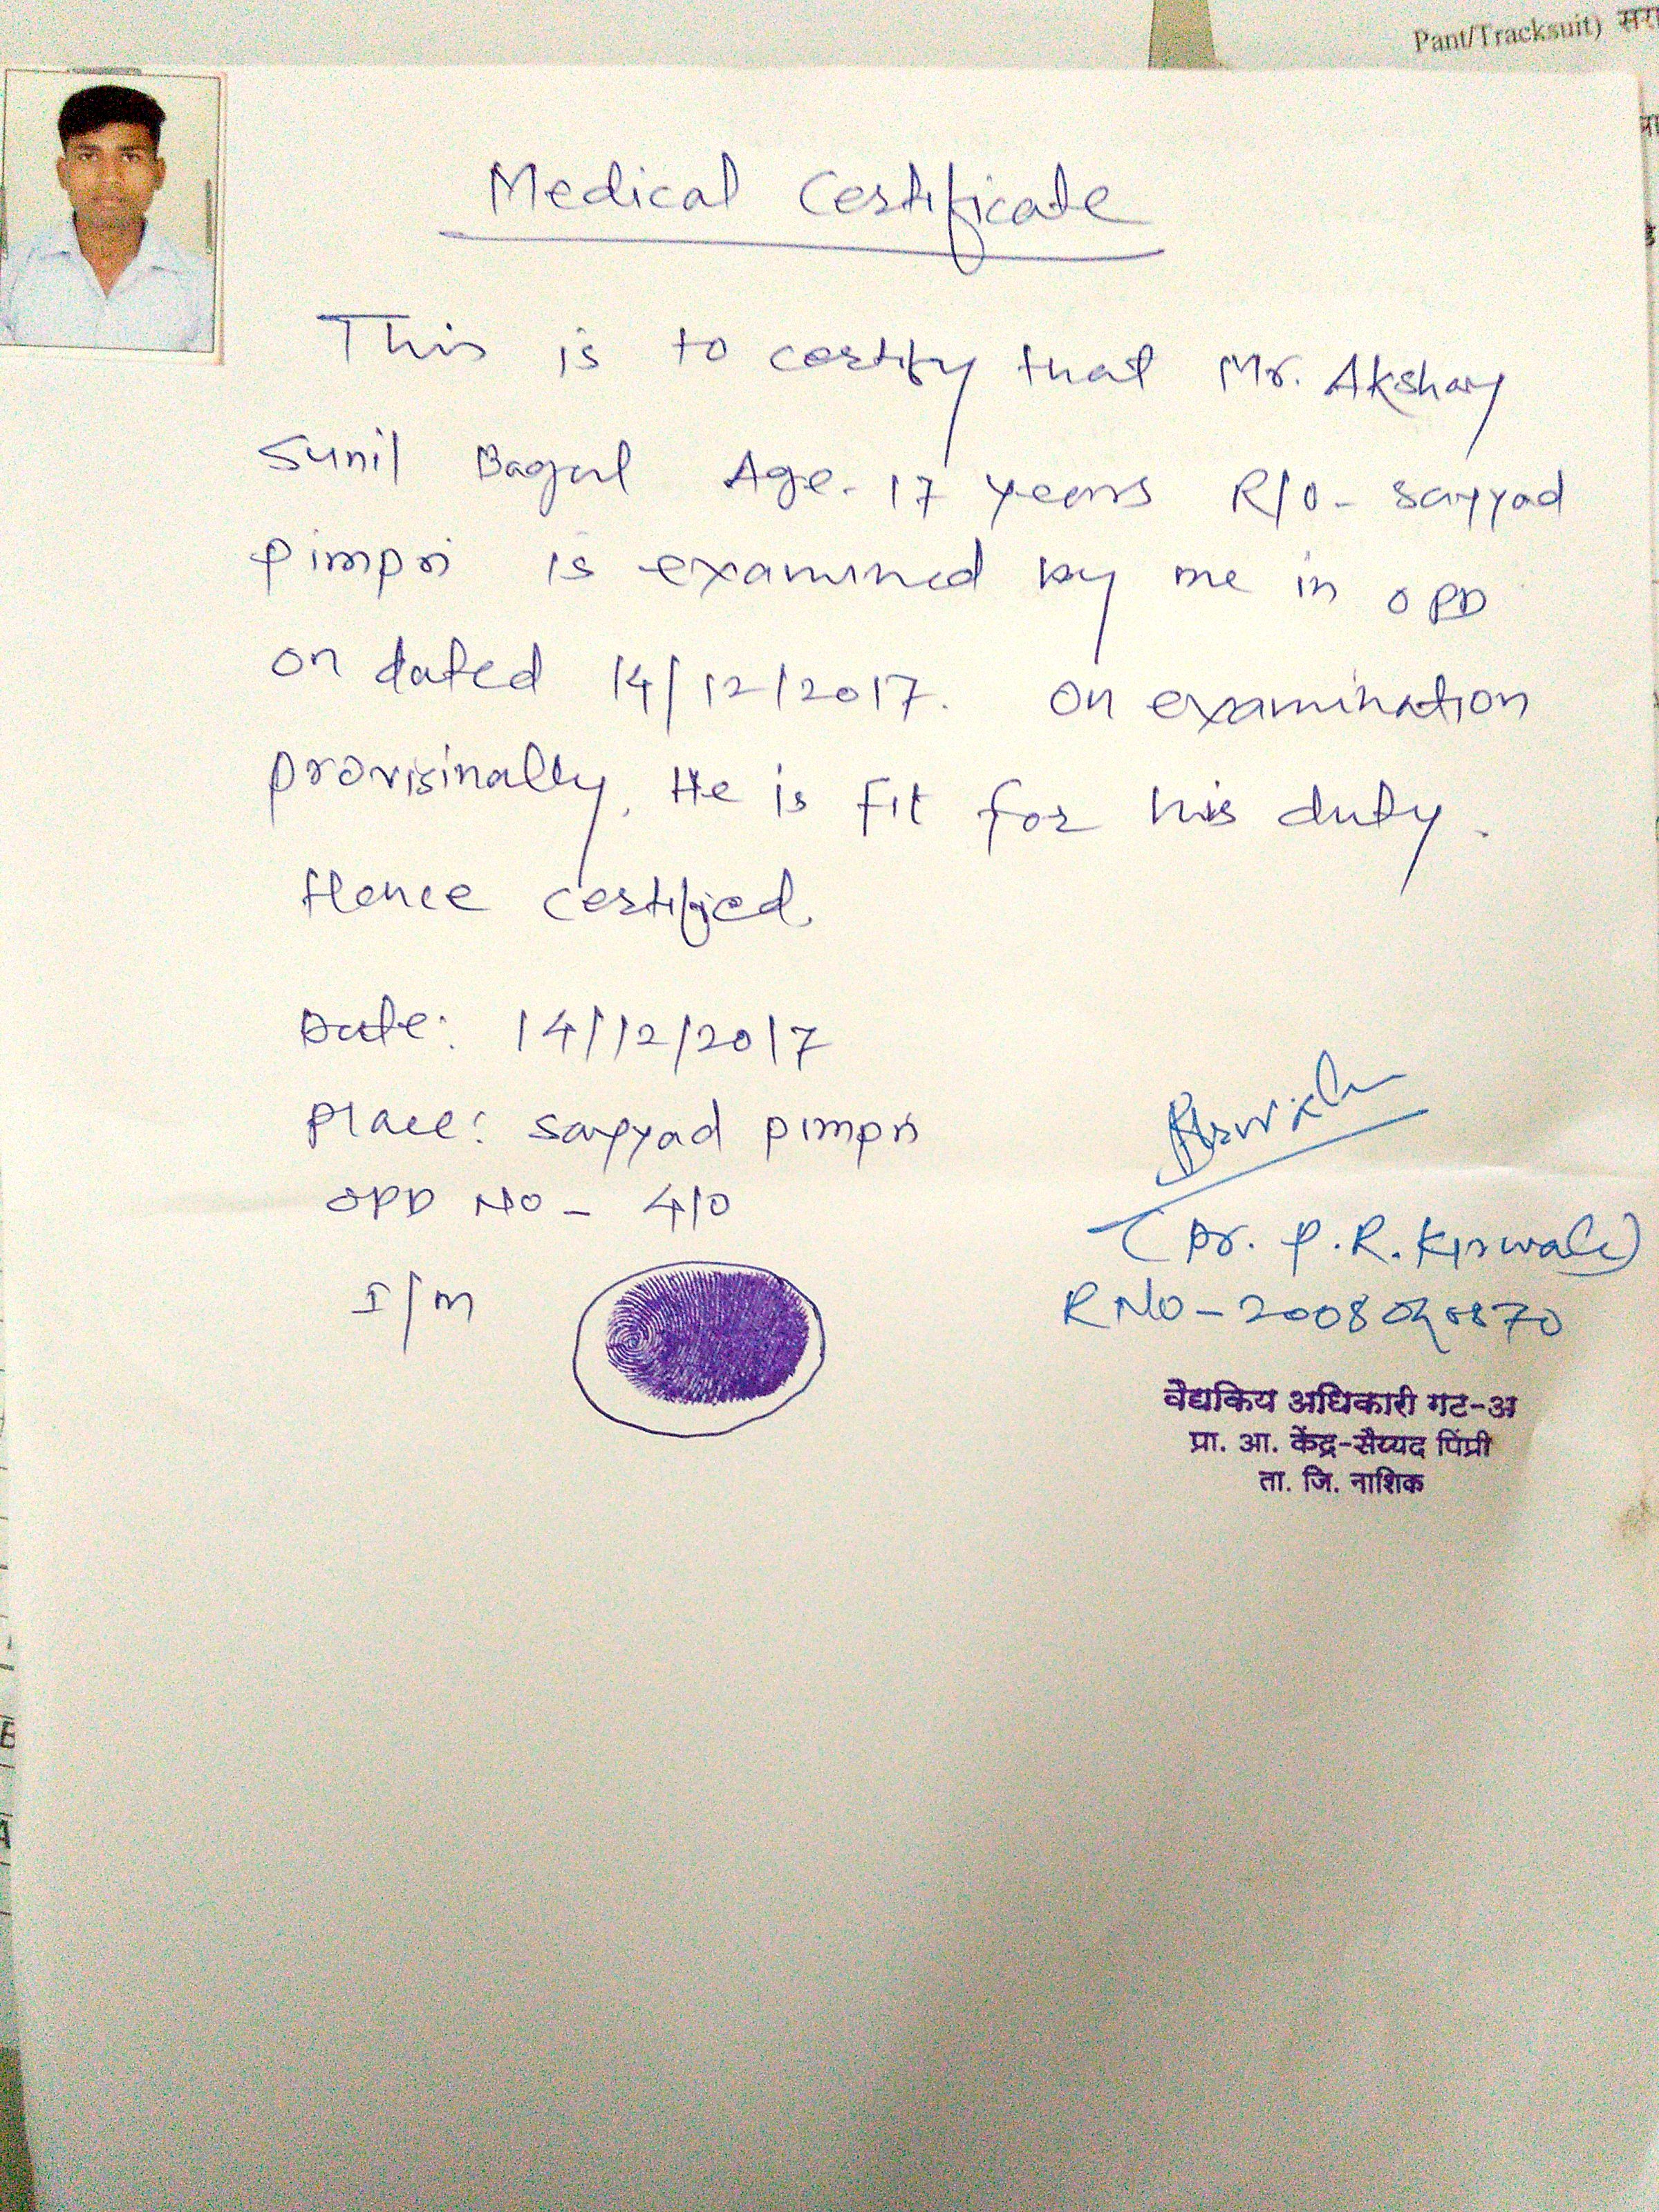 Pant/Tracksuit)
Medical Certificate
This is to certify that Mr. Akshay
Sunil Bagul Age- 17 years R/o- sayyad
pimpri is examined by me in OPD
on dated 14/12/2017. On examination
provisinally, He is fit for his duty.
Hence certified.
Date: 14/12/2017
Place: sayyad pimpri
OPD No - 410
I/m
(Dr. P.R.
R No-
वैद्यकिय अधिकारी गट-अ
प्रा. आ. केंद्र-सैय्यद पिंप्री
ता. जि. नाशिक